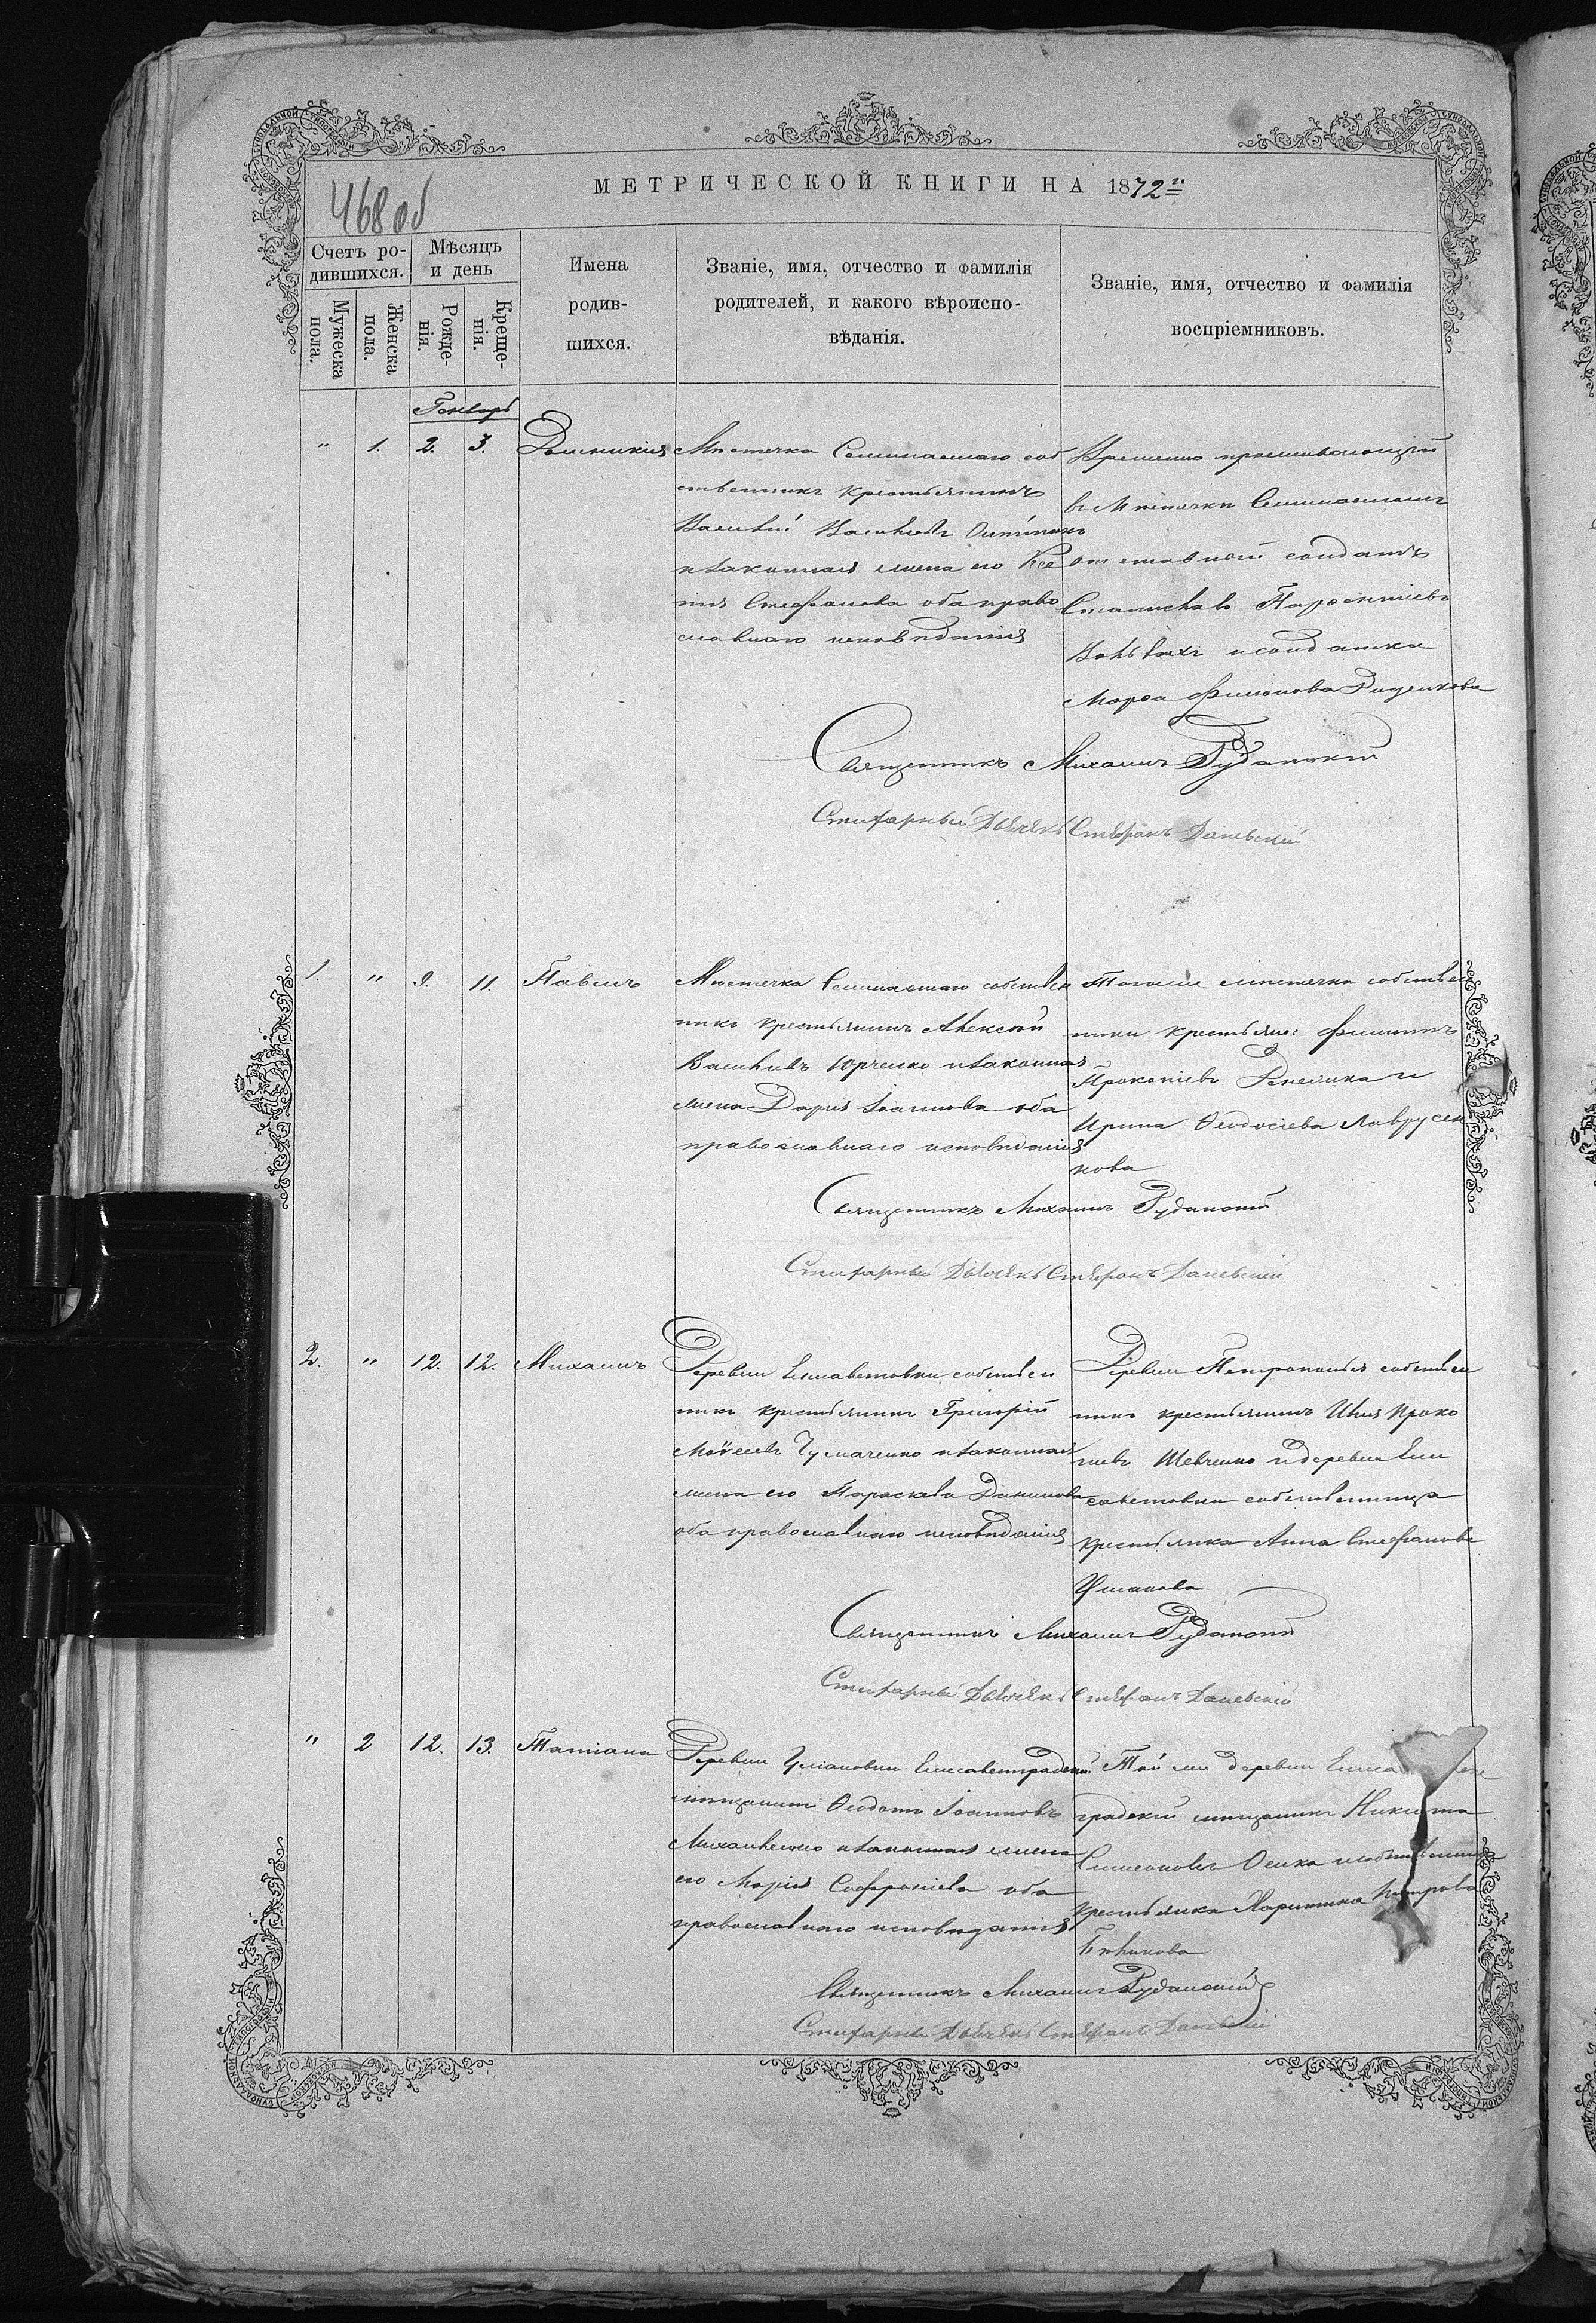 468 об
МЕТРИЧЕСКОЙ КНИГИ НА 1872 г.
Счетъ ро-
дившихся.
Мужеска
пола.
Женска
пола.
Мѣсяцъ
и день
Рожде-
нія.
Креще-
нія.
Имена
родив-
шихся.
Званіе, имя, отчество и фамилія
родителей, и какого вѣроиспо-
вѣданія.
Званіе, имя, отчество и фамилія
воспріемниковъ.
Генварь
" 1. 2. 3. Домникия
Мѣстечка Семинастаго соб
ственникъ крестьянинъ
Василій Васильевъ
и законная жена его Ксе
нія Стефанова оба право
славнаго исповѣданія
Временно проживающій
въ Мѣстечкѣ Семинастомъ
отставной солдатъ
Станиславъ
и солдатка
Марѳа Филиопова
Священникъ Михаилъ Руданский
Стихарный Дьячекъ Стефанъ Даневский
1. " 9. 11. Павелъ
Мѣстечка Семинастаго собствен
никъ крестьянинъ Алексѣй
Васильевъ Юрченко и законная
жена Дарія Іоаннова оба
православнаго исповѣданія
Того же мѣстечка собствен
ники крестьяне: Филиппъ
Прокопіевъ и
Ирина Ѳеодосіева Лаврусен
кова
Священникъ Михаилъ Руданский
Стихарный Дьячекъ Стефанъ Даневский
2. " 12. 12. Михаилъ
Деревни Елисаветовки собствен
никъ крестьянинъ Григорій
Моѵсеевъ Чумаченко и законная
жена его Параскева Данилова
оба православнаго исповѣданія
Деревни Петрополья собствен
никъ крестьянинъ Илья Проко
піевъ Шевченко и деревни Ели
саветовки собственница
крестьянка Анна Стефанова
Усманова
Священникъ Михаилъ Руданский
Стихарный Дьячекъ Стефанъ Даневский
" 2 12. 13. Татіана
Деревни Елисаветградскій
мѣщанинъ Ѳеодотъ Іоанновъ
Михаиленко и законная жена
его Марія Софроніева оба
православнаго исповѣданія
Той же деревни
градскій мѣщанинъ Никита
Симеоновъ Осика
крестьянка Харитина Петрова
Священникъ Михаилъ Руданский
Стихарный Дьячекъ Стефанъ Даневский